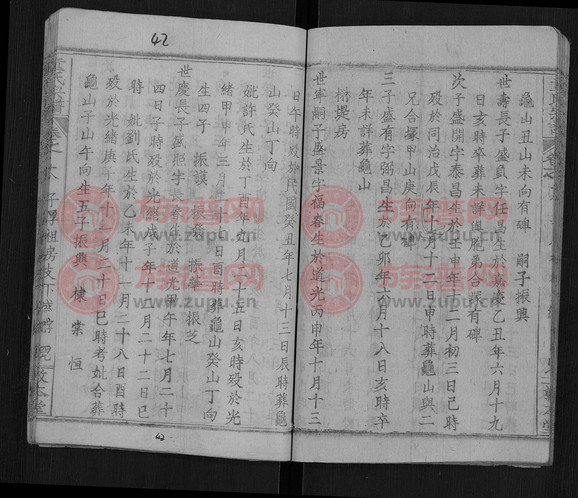 龜山丑山未向有碑 嗣子振興
世壽長子盛貟字任昌生於嘉慶乙丑年六月十九
日亥時卒葬未詳與胞弟合振有碑
次子盛開字泰昌生於壬申年二月初三日己時
殁於同治戊辰年十月十二日申時葬龜山與二
兄合塚甲山庚向有碑
三子盛有字弼昌生於乙卯年六月十八日亥時卒
年未詳葬龜山
樹堤房
世寧嗣子盛景字福春生於道光丙申年十月十三
日午時殁於民國癸丑年七月十三日辰時葬龜
山癸山丁向
妣許氏生於丁酉年九月二十五日亥時殁於光
緒甲申年三月 日酉時葬龜山癸山丁向
生四子 振謨 振華 振芝
世慶長子盛熙字長春生於道光甲午年七月二十
四日子時殁於光緒戊子年十二月二十二日巳
時 妣劉氏生於乙未年十一月二十八日酉時
殁於光緒庚午年十一月二十日巳時考妣合葬
龜山子山午向生五子振興 棟 業 恒
42
42
万家谱网
www.zupu.cn
万家谱网
www.zupu.cn